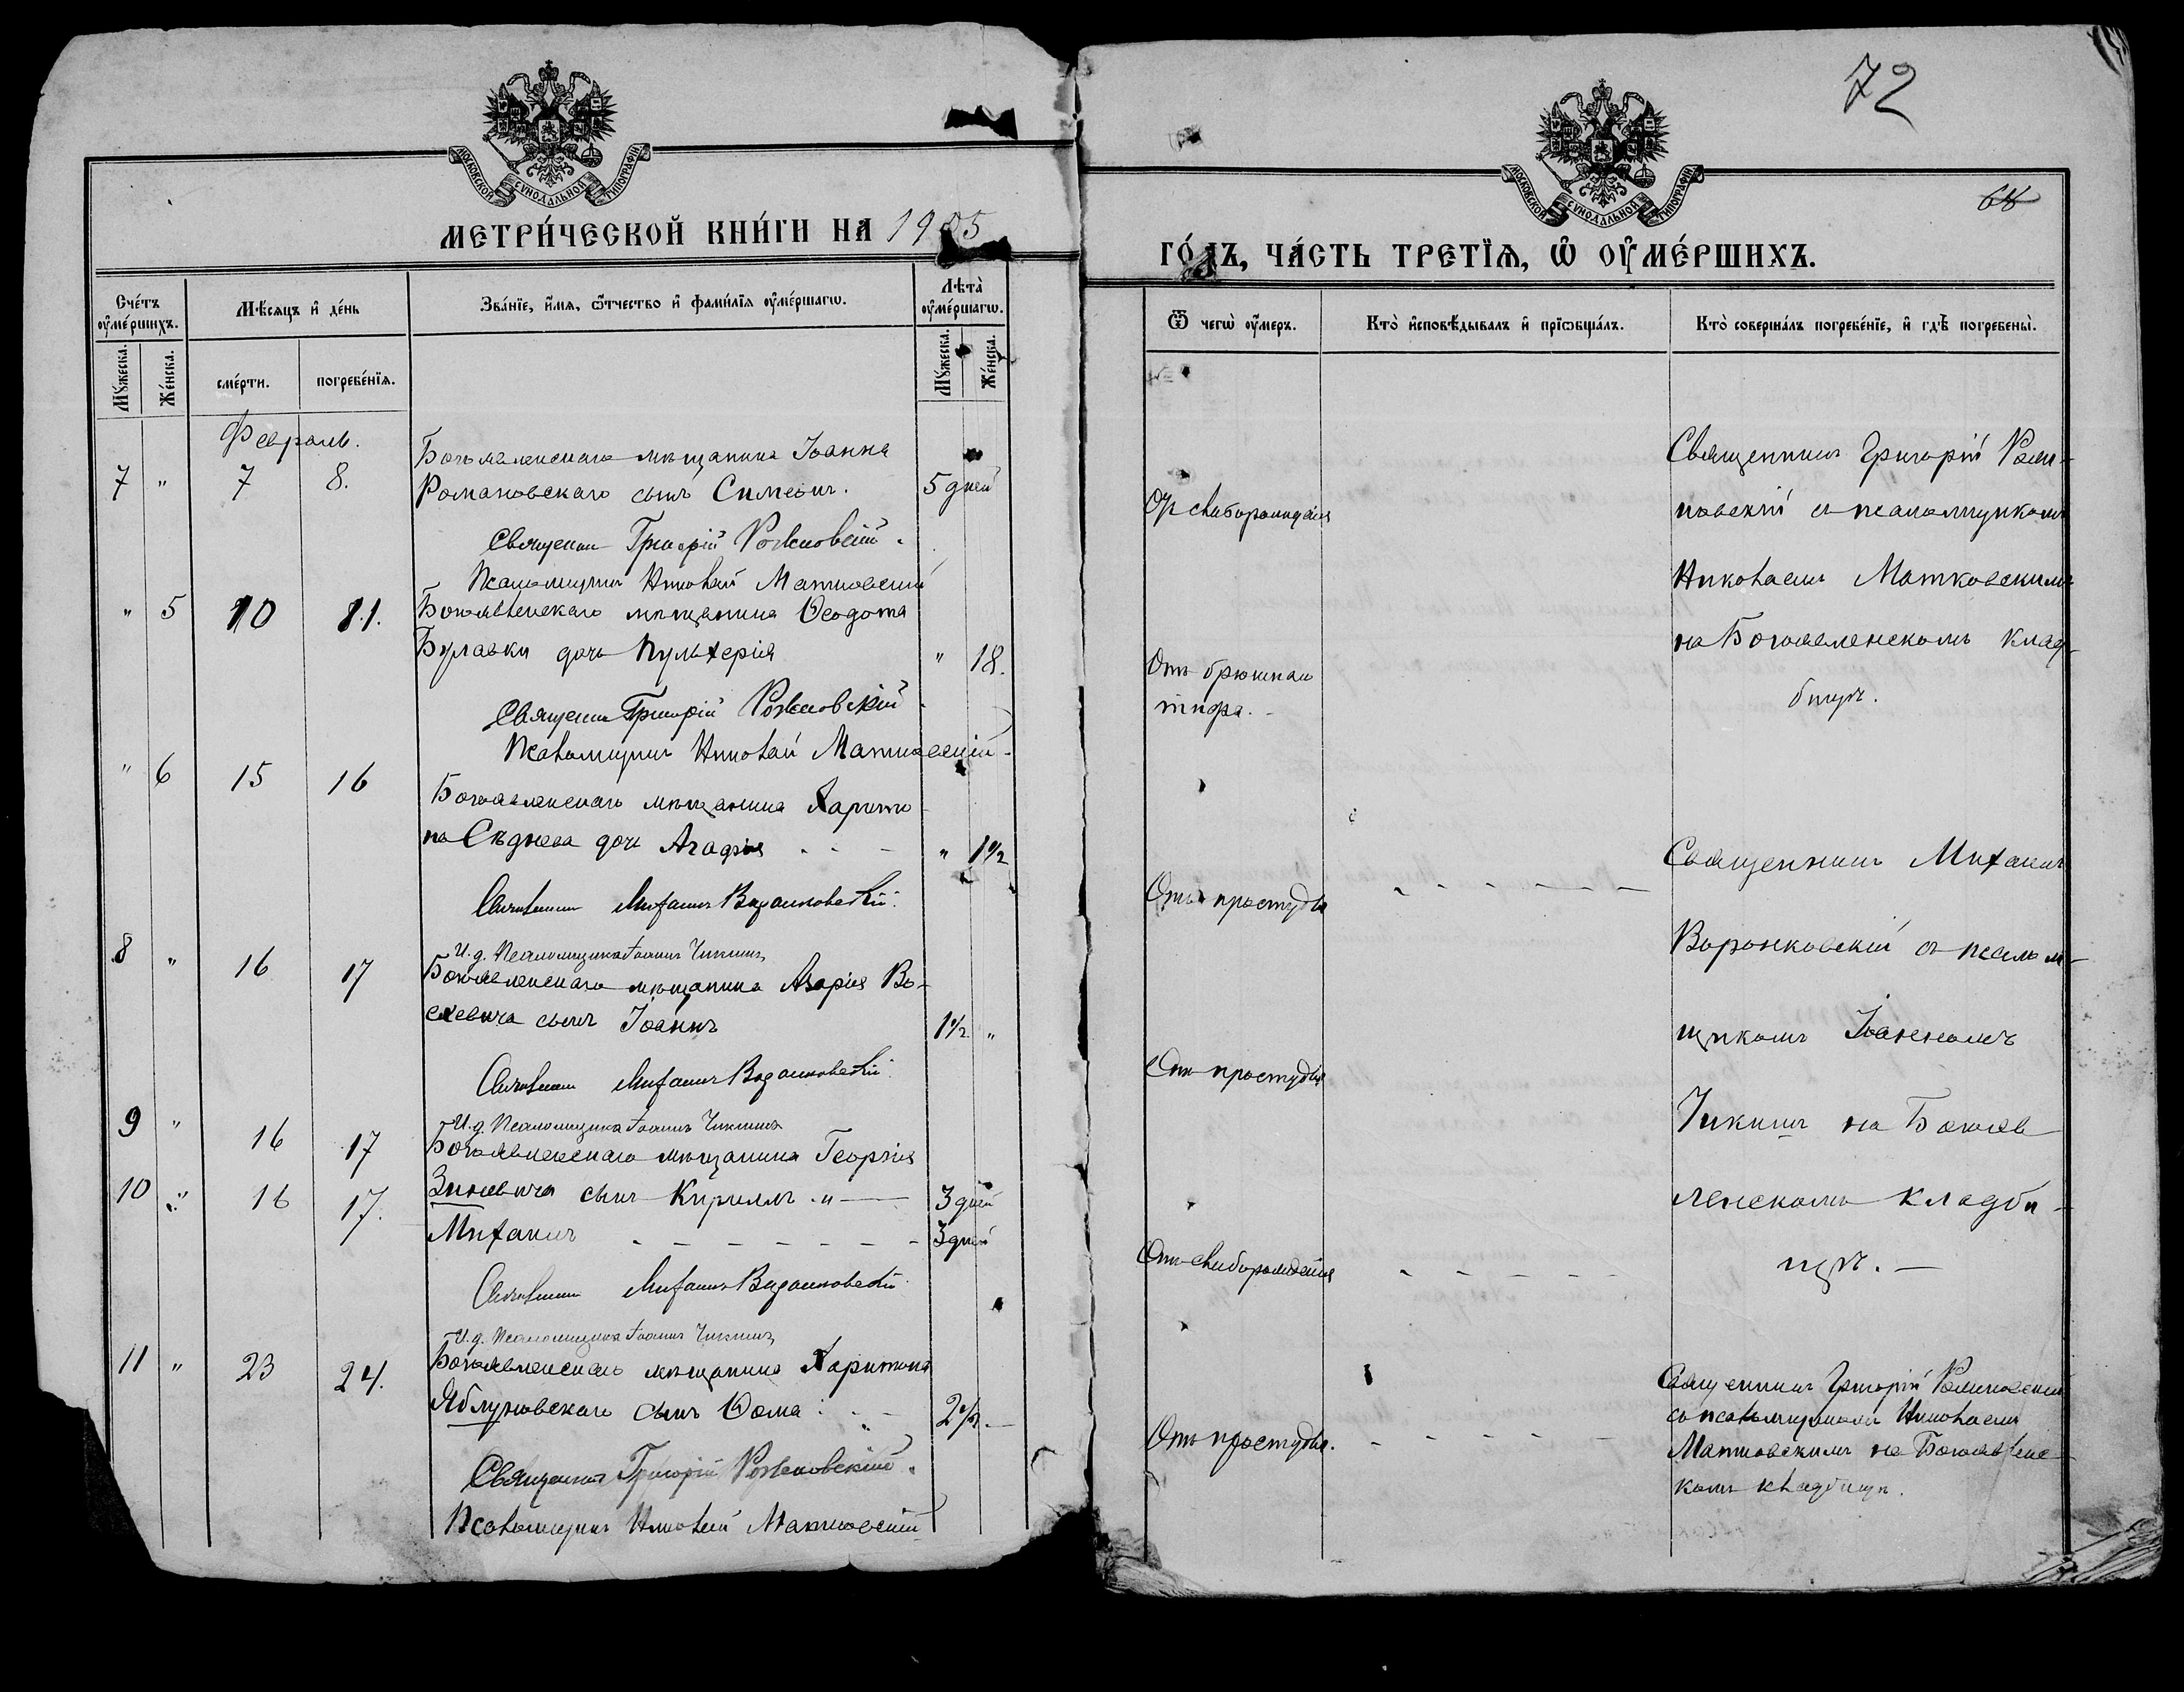 МОСКОВСКОЙ СѴНОДАЛЬНОЙ ТИПОГРАФІИ
МЕТРИ́ЧЕСКОЙ КНИ́ГИ НА 1905
Сче́тъ оу҆ме́ршихъ.
Мѣ́сяцъ и҆ де́нь
Зва́нїе, и҆́мя, ѿ́тчество и҆ фами́лїя оу҆ме́ршагѡ.
Лѣ́та оу҆ме́ршагѡ.
Мꙋ́жеска.
Же́нска.
сме́рти.
погребе́нїя.
Мꙋ́жеска.
Же́нска.
Февраль.
7 " 7 8.
Богоявленскаго мѣщанина Іоанна
Романовскаго сынъ Симеонъ. 5 дней
Священникъ Григорій
Псаломщикъ Николай Матковскій
" 5 10 11.
Богоявленскаго мѣщанина Ѳеодота
Булавки дочь Пульхерія " 18.
Священникъ Григорій
Псаломщикъ Николай Матковскій
" 6 15 16
Богоявленскаго мѣщанина Харито-
на Сѣднева дочь Агафія " 1½
Священникъ Михаилъ Воронковскій.
И.д. Псаломщика Іоаннъ Чикинъ
8 " 16 17
Богоявленскаго мѣщанина Азарія
сынъ Іоаннъ 1½ "
Священникъ Михаилъ Воронковскій.
И.д. Псаломщика Іоаннъ Чикинъ
9 " 16 17
Богоявленскаго мѣщанина Георгія
10 " 16 17.
Зиневича сынъ Кириллъ " 3 дней
Михаилъ 3 дней
Священникъ Михаилъ Воронковскій
И.д. Псаломщика Іоаннъ Чикинъ
11 " 23 24.
Богоявленскаго мѣщанина Харитона
Яблуновскаго сынъ Ѳома 2½
Священникъ Григорій
Псаломщикъ Николай Матковскій
72
68
МОСКОВСКОЙ СѴНОДАЛЬНОЙ ТИПОГРАФІИ
ГО́ДЪ, ЧА́СТЬ ТРЕТЇЯ, Ѡ҆ ОУ҆МЕ́РШИХЪ.
Ѿ чегѡ̀ оу҆́меръ.
Кто̀ и҆сповѣ́дывалъ и҆ прїѡбща́лъ.
Кто̀ соверша́лъ погребе́нїе, и҆ гдѣ̀ погребены̀.
От слаборожденія
Священникъ Григорій
съ псаломщикомъ
Николаемъ Матковскимъ
на Богоявленскомъ клад-
бищѣ.
Отъ брюшнаго
тифа.
Отъ простуды
Священникъ Михаилъ
Воронковскій съ псалом-
щикомъ Іоанномъ
Чикинъ на Богояв
ленскомъ кладби-
щѣ.
Отъ простуды
Отъ слаборожденія
Отъ простуды.
Священникъ Григорій
съ псаломщикомъ Николаемъ
Матковскимъ на Богоявленс-
комъ кладбищѣ.